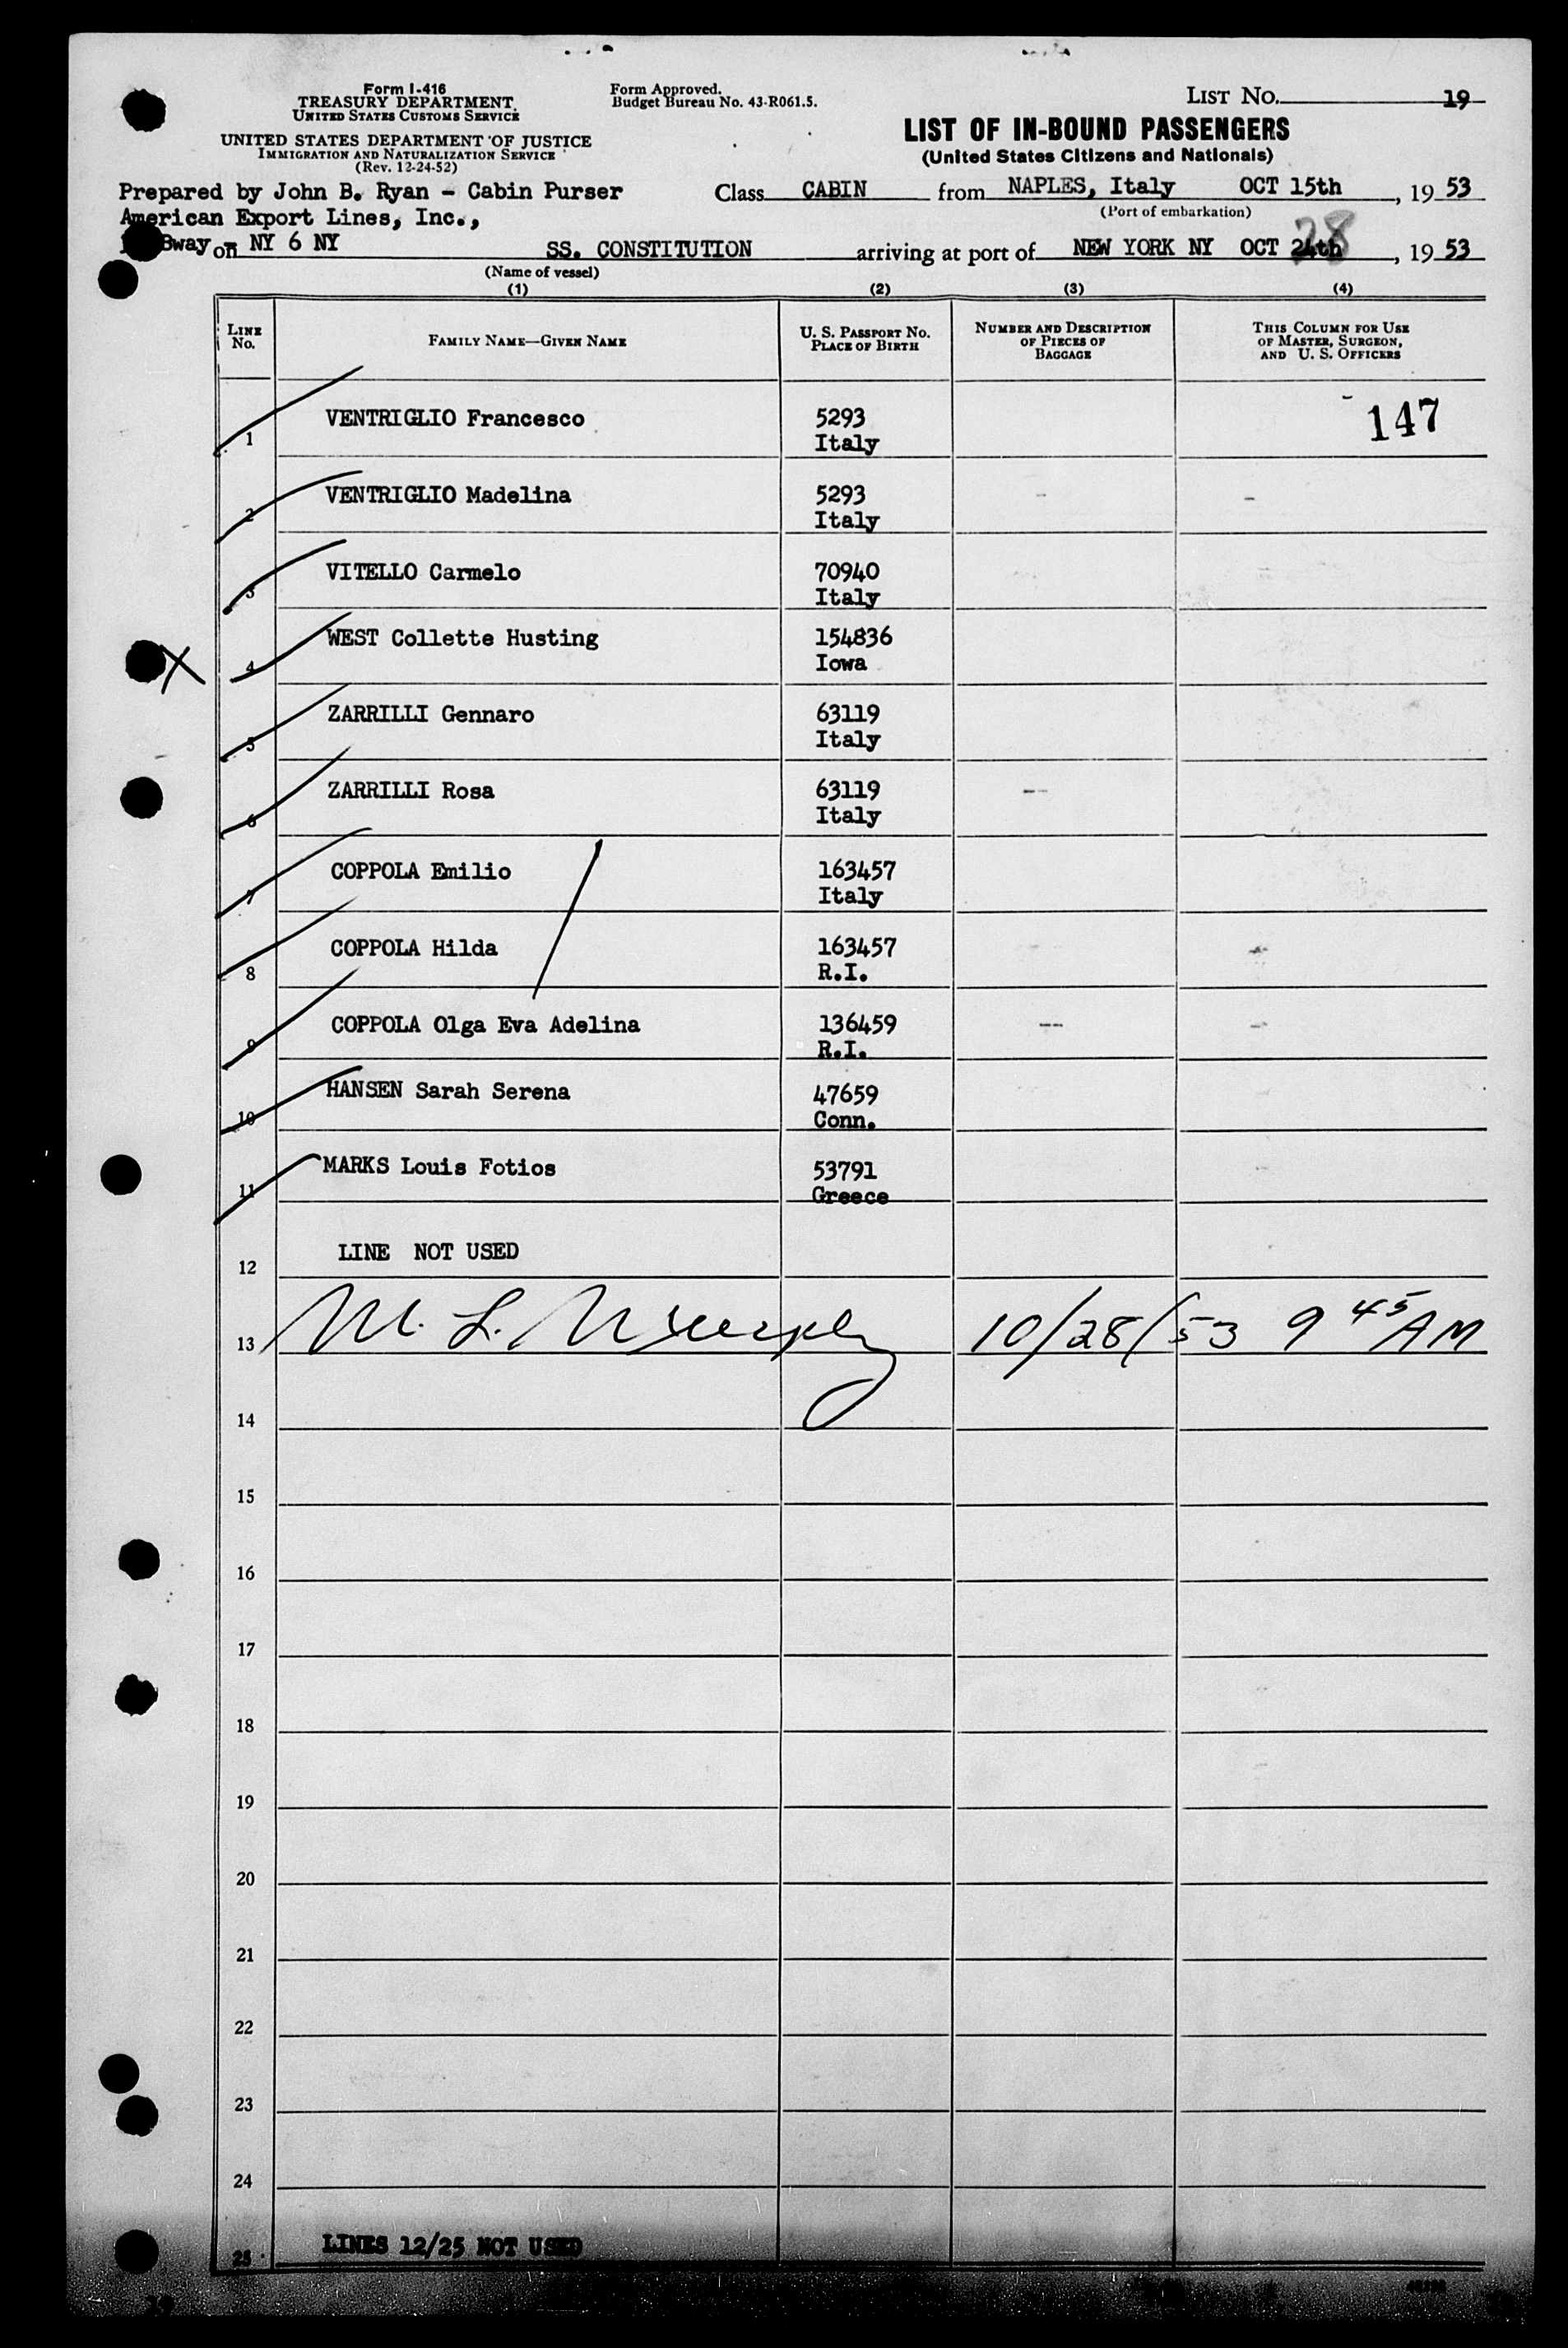 Form I-416
TREASURY DEPARTMENT
UNITED STATES CUSTOMS SERVICE
UNITED STATES DEPARTMENT OF JUSTICE
IMMIGRATION AND NATURALIZATION SERVICE
(Rev. 12-24-52)
Form Approved.
Budget Bureau No. 43-R061.5.
LIST No. 19
LIST OF IN-BOUND PASSENGERS
(United States Citizens and Nationals)
Prepared by John B. Ryan - Cabin Purser
American Export Lines, Inc.,
Bway - NY 6 NY
Class CABIN from NAPLES, Italy OCT 15th, 1953
(Port of embarkation)
on SS. CONSTITUTION arriving at port of NEW YORK NY OCT 24th 28, 1953
(Name of vessel)
(1) (2) (3) (4)
LINE No. FAMILY NAME—GIVEN NAME U. S. PASSPORT No. PLACE OF BIRTH NUMBER AND DESCRIPTION OF PIECES OF BAGGAGE THIS COLUMN FOR USE OF MASTER, SURGEON, AND U. S. OFFICERS
1 VENTRIGLIO Francesco 5293 147
Italy
2 VENTRIGLIO Madelina 5293
Italy
3 VITELLO Carmelo 70940
Italy
X 4 WEST Collette Husting 154836
Iowa
5 ZARRILLI Gennaro 63119
Italy
6 ZARRILLI Rosa 63119
Italy
7 COPPOLA Emilio 163457
Italy
8 COPPOLA Hilda 163457
R.I.
9 COPPOLA Olga Eva Adelina 136459
R.I.
10 HANSEN Sarah Serena 47659
Conn.
11 MARKS Louis Fotios 53791
Greece
12 LINE NOT USED
13 M. L. Murphy 10/28/53 9 45 AM
14
15
16
17
18
19
20
21
22
23
24
25 LINES 12/25 NOT USED